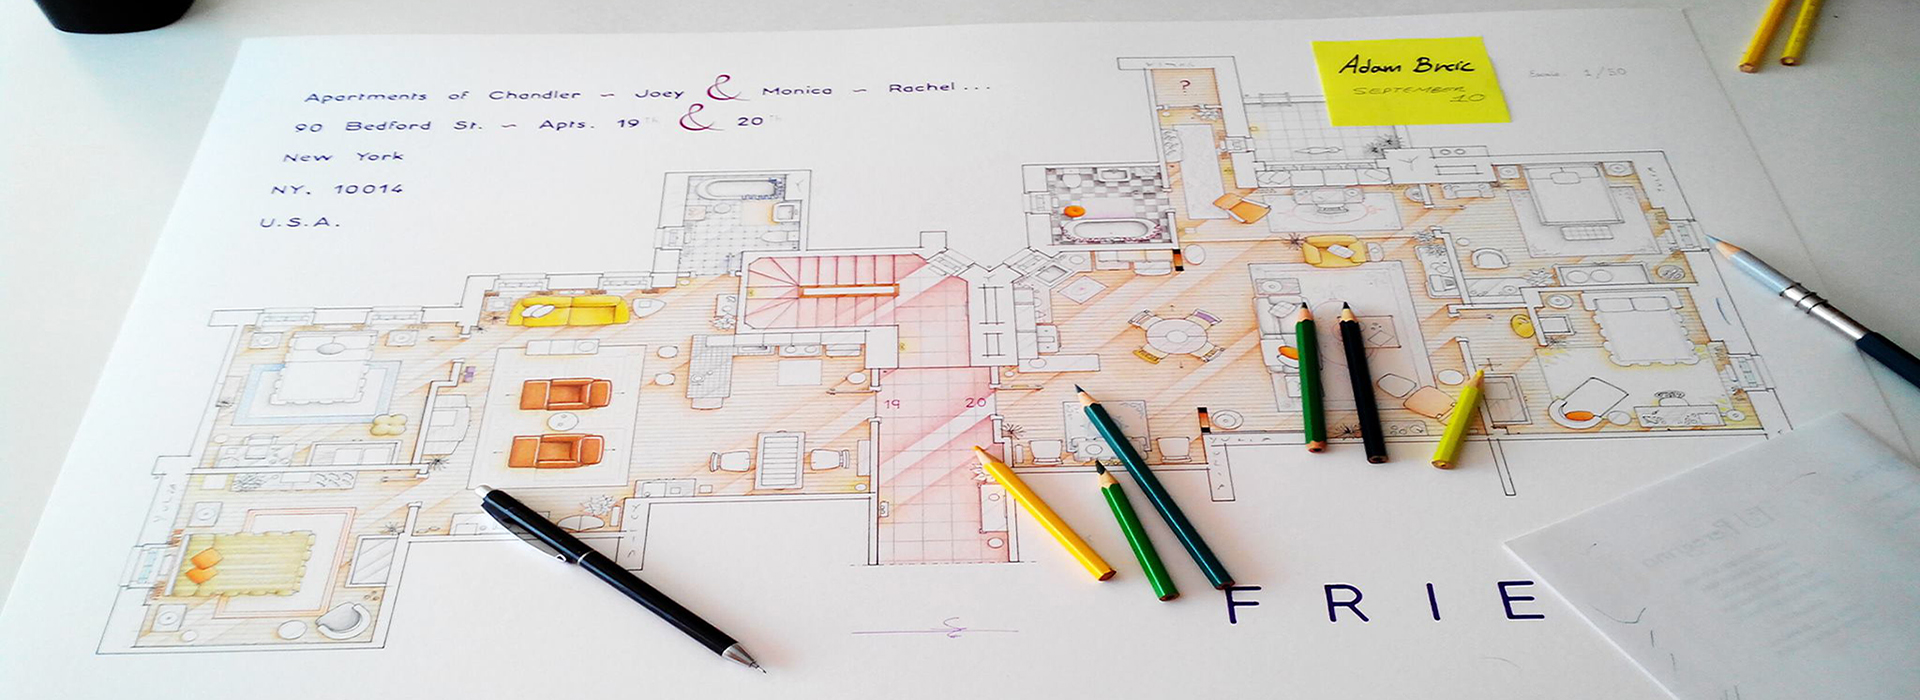 Apartments of Chandler ~ Joey & Monica ~ Rachel...
90 Bedford St. ~ Apts. 19th & 20th
New York
NY. 10014
U.S.A.
?
Adam Brcic
SEPTEMBER
10
1/50
19
20
YULIA
YULIA
FRIE